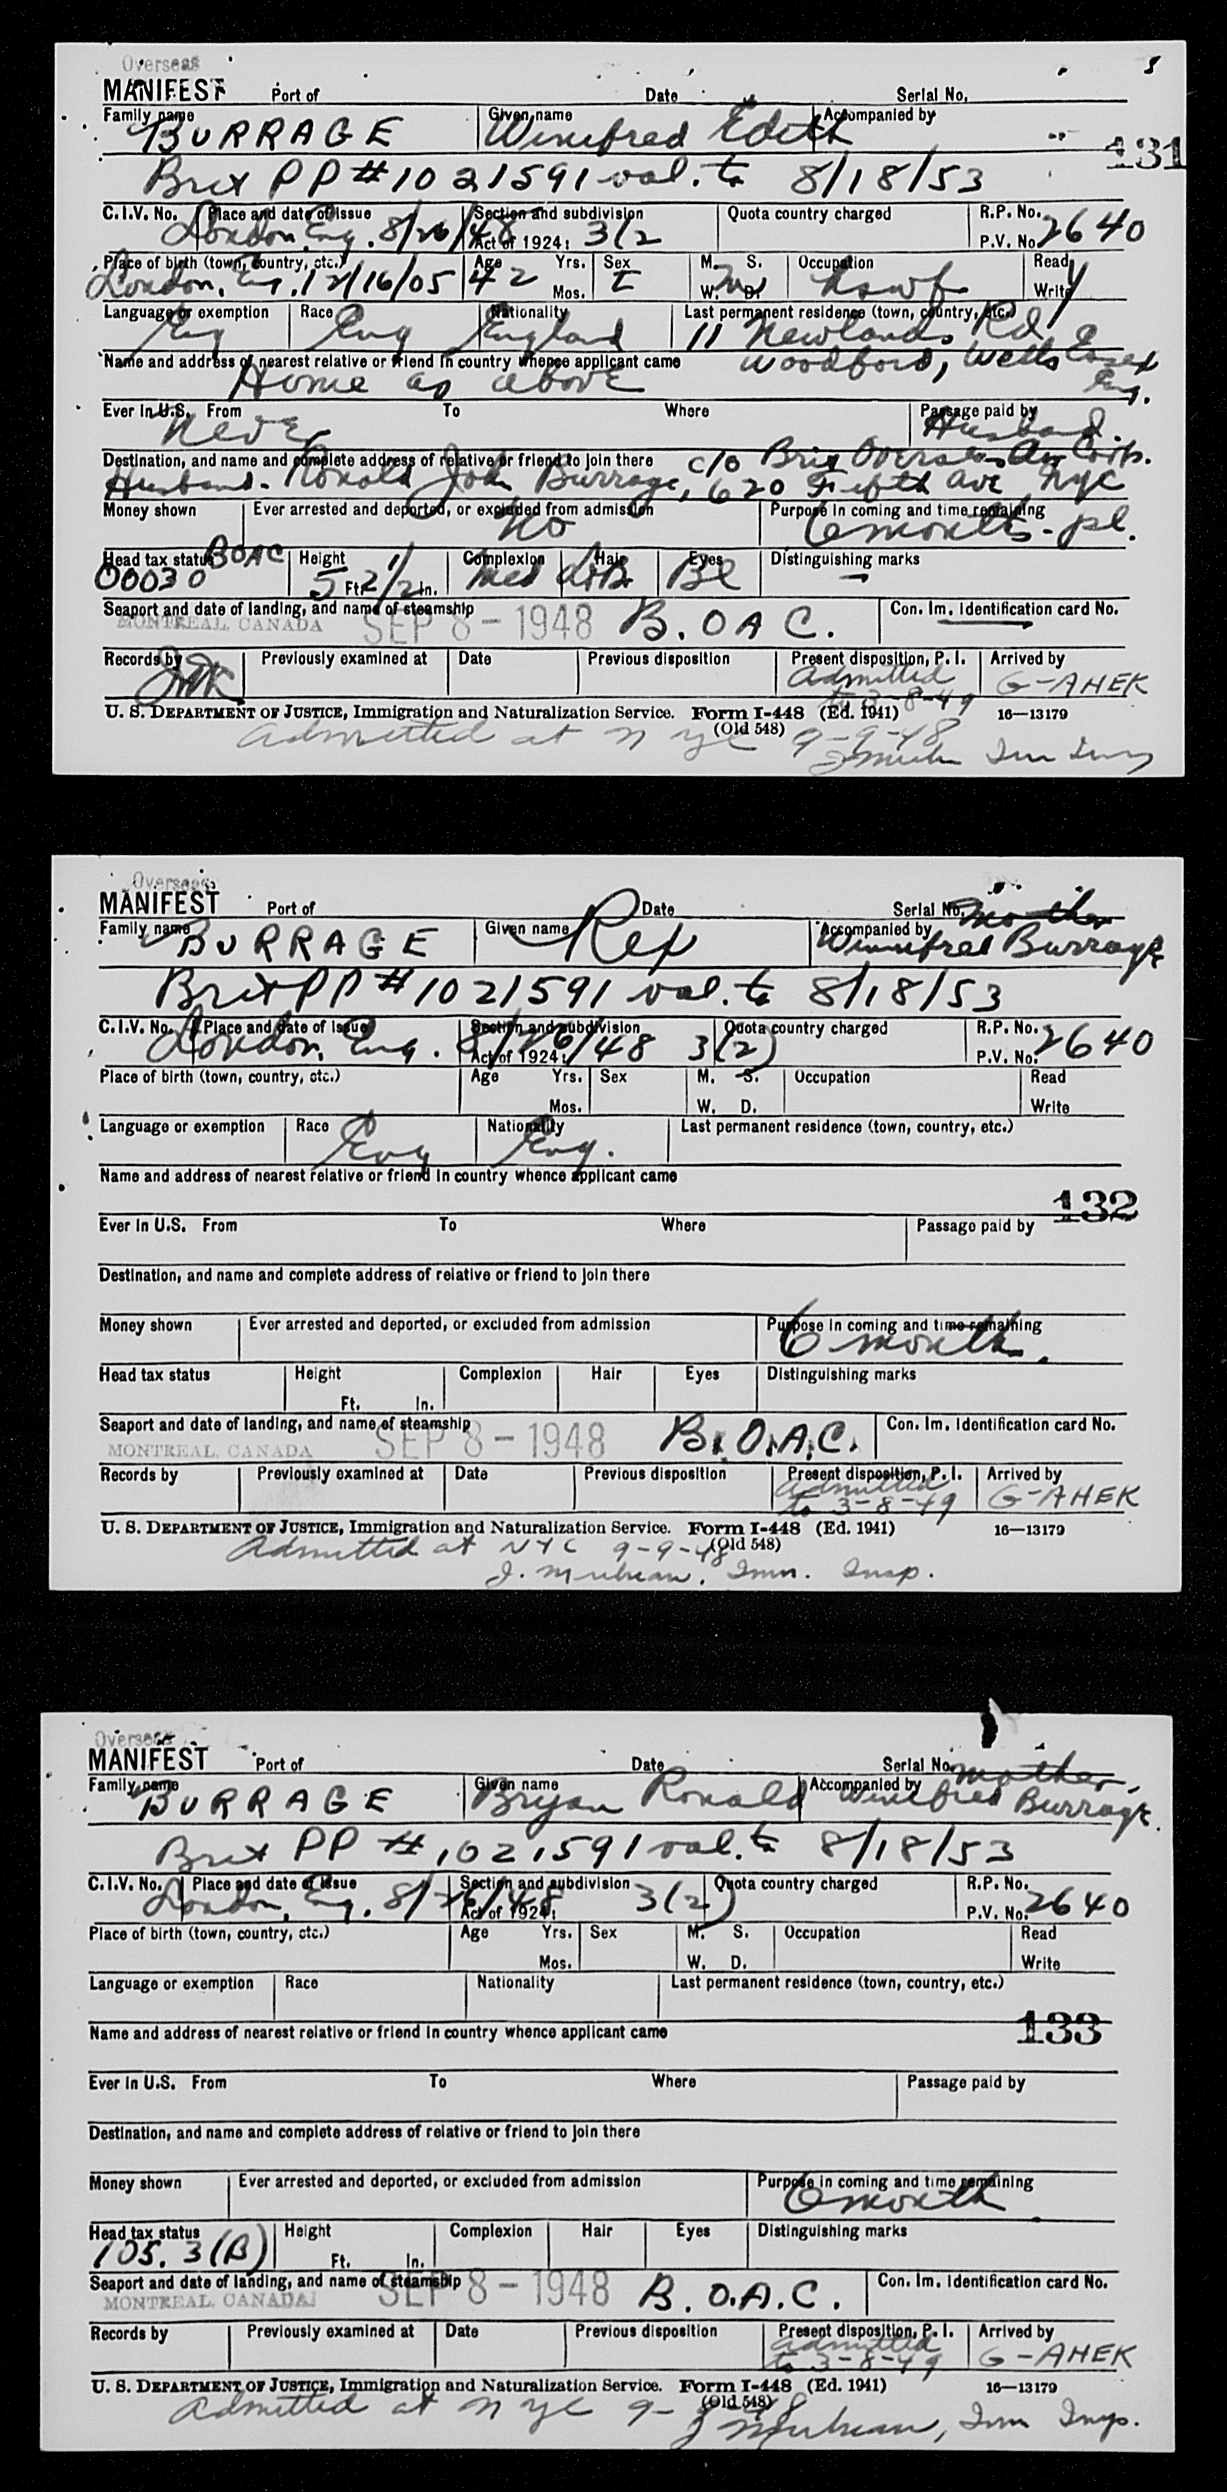 Overseas
MANIFEST Port of Date Serial No.
Family name Given name Accompanied by
BURRAGE Winifred Edith
131
Brit PP # 1021591 val. to 8/18/53
C.I.V. No. Place and date of issue Section and subdivision Quota country charged R.P. No.
London, Eng. 8/26/48 Act of 1924: 3(2 P.V. No. 2640
Place of birth (town, country, etc.) Age Yrs. Sex M. S. Occupation Read
London, Eng. 12/16/05 42 Mos. W. D. hswf Write y
Language or exemption Race Nationality Last permanent residence (town, country, etc.)
Eng Eng England 11 Newlands Rd
Name and address of nearest relative or friend in country whence applicant came Woodford, Wells Essex
Home as above Eng.
Ever in U.S. From To Where Passage paid by
Never Husband.
Destination, and name and complete address of relative or friend to join there c/o Brit Overseas Air Corp.
Husband - Ronald John Burrage, 620 Fifth Ave NYC
Money shown Ever arrested and deported, or excluded from admission Purpose in coming and time remaining
No 6 months - pl.
Head tax status BOAC Height Complexion Hair Eyes Distinguishing marks
00030 5 Ft. 2 1/2 In. Med Bl —
Seaport and date of landing, and name of steamship Con. Im. Identification card No.
MONTREAL, CANADA SEP 8 - 1948 B.O.A.C.
Records by Previously examined at Date Previous disposition Present disposition, P. I. Arrived by
Admitted to 3-8-49 G-AHEK
U. S. DEPARTMENT OF JUSTICE, Immigration and Naturalization Service. Form I-448 (Ed. 1941) 16—13179
(Old 548)
Admitted at N Y C 9-9-48
Overseas
MANIFEST Port of Date Serial No. mother
Family name Given name Accompanied by
BURRAGE Rex Winnifred Burrage
Brit PP # 1021591 val. to 8/18/53
C.I.V. No. Place and date of issue Section and subdivision Quota country charged R.P. No.
London, Eng. 8/26/48 Act of 1924: 3(2) P.V. No. 2640
Place of birth (town, country, etc.) Age Yrs. Sex M. S. Occupation Read
Mos. W. D. Write
Language or exemption Race Nationality Last permanent residence (town, country, etc.)
Eng Eng.
Name and address of nearest relative or friend in country whence applicant came
132
Ever in U.S. From To Where Passage paid by
Destination, and name and complete address of relative or friend to join there
Money shown Ever arrested and deported, or excluded from admission Purpose in coming and time remaining
6 month.
Head tax status Height Complexion Hair Eyes Distinguishing marks
Ft. In.
Seaport and date of landing, and name of steamship Con. Im. Identification card No.
MONTREAL, CANADA SEP 8 - 1948 B.O.A.C.
Records by Previously examined at Date Previous disposition Present disposition, P. I. Arrived by
Admitted to 3-8-49 G-AHEK
U. S. DEPARTMENT OF JUSTICE, Immigration and Naturalization Service. Form I-448 (Ed. 1941) 16—13179
(Old 548)
Admitted at N Y C 9-9-48
Imm. Insp.
Overseas
MANIFEST Port of Date Serial No. mother,
Family name Given name Accompanied by
BURRAGE Bryan Ronald Winifred Burrage.
Brit PP # 1021591 val. to 8/18/53
C.I.V. No. Place and date of issue Section and subdivision Quota country charged R.P. No.
London, Eng. 8/26/48 Act of 1924: 3(2) P.V. No. 2640
Place of birth (town, country, etc.) Age Yrs. Sex M. S. Occupation Read
Mos. W. D. Write
Language or exemption Race Nationality Last permanent residence (town, country, etc.)
133
Name and address of nearest relative or friend in country whence applicant came
Ever in U.S. From To Where Passage paid by
Destination, and name and complete address of relative or friend to join there
Money shown Ever arrested and deported, or excluded from admission Purpose in coming and time remaining
6 month
Head tax status Height Complexion Hair Eyes Distinguishing marks
105. 3(B) Ft. In.
Seaport and date of landing, and name of steamship Con. Im. Identification card No.
MONTREAL, CANADA SEP 8 - 1948 B.O.A.C.
Records by Previously examined at Date Previous disposition Present disposition, P. I. Arrived by
Admitted to 3-8-49 G-AHEK
U. S. DEPARTMENT OF JUSTICE, Immigration and Naturalization Service. Form I-448 (Ed. 1941) 16—13179
(Old 548)
Admitted at N Y C
Imm Insp.